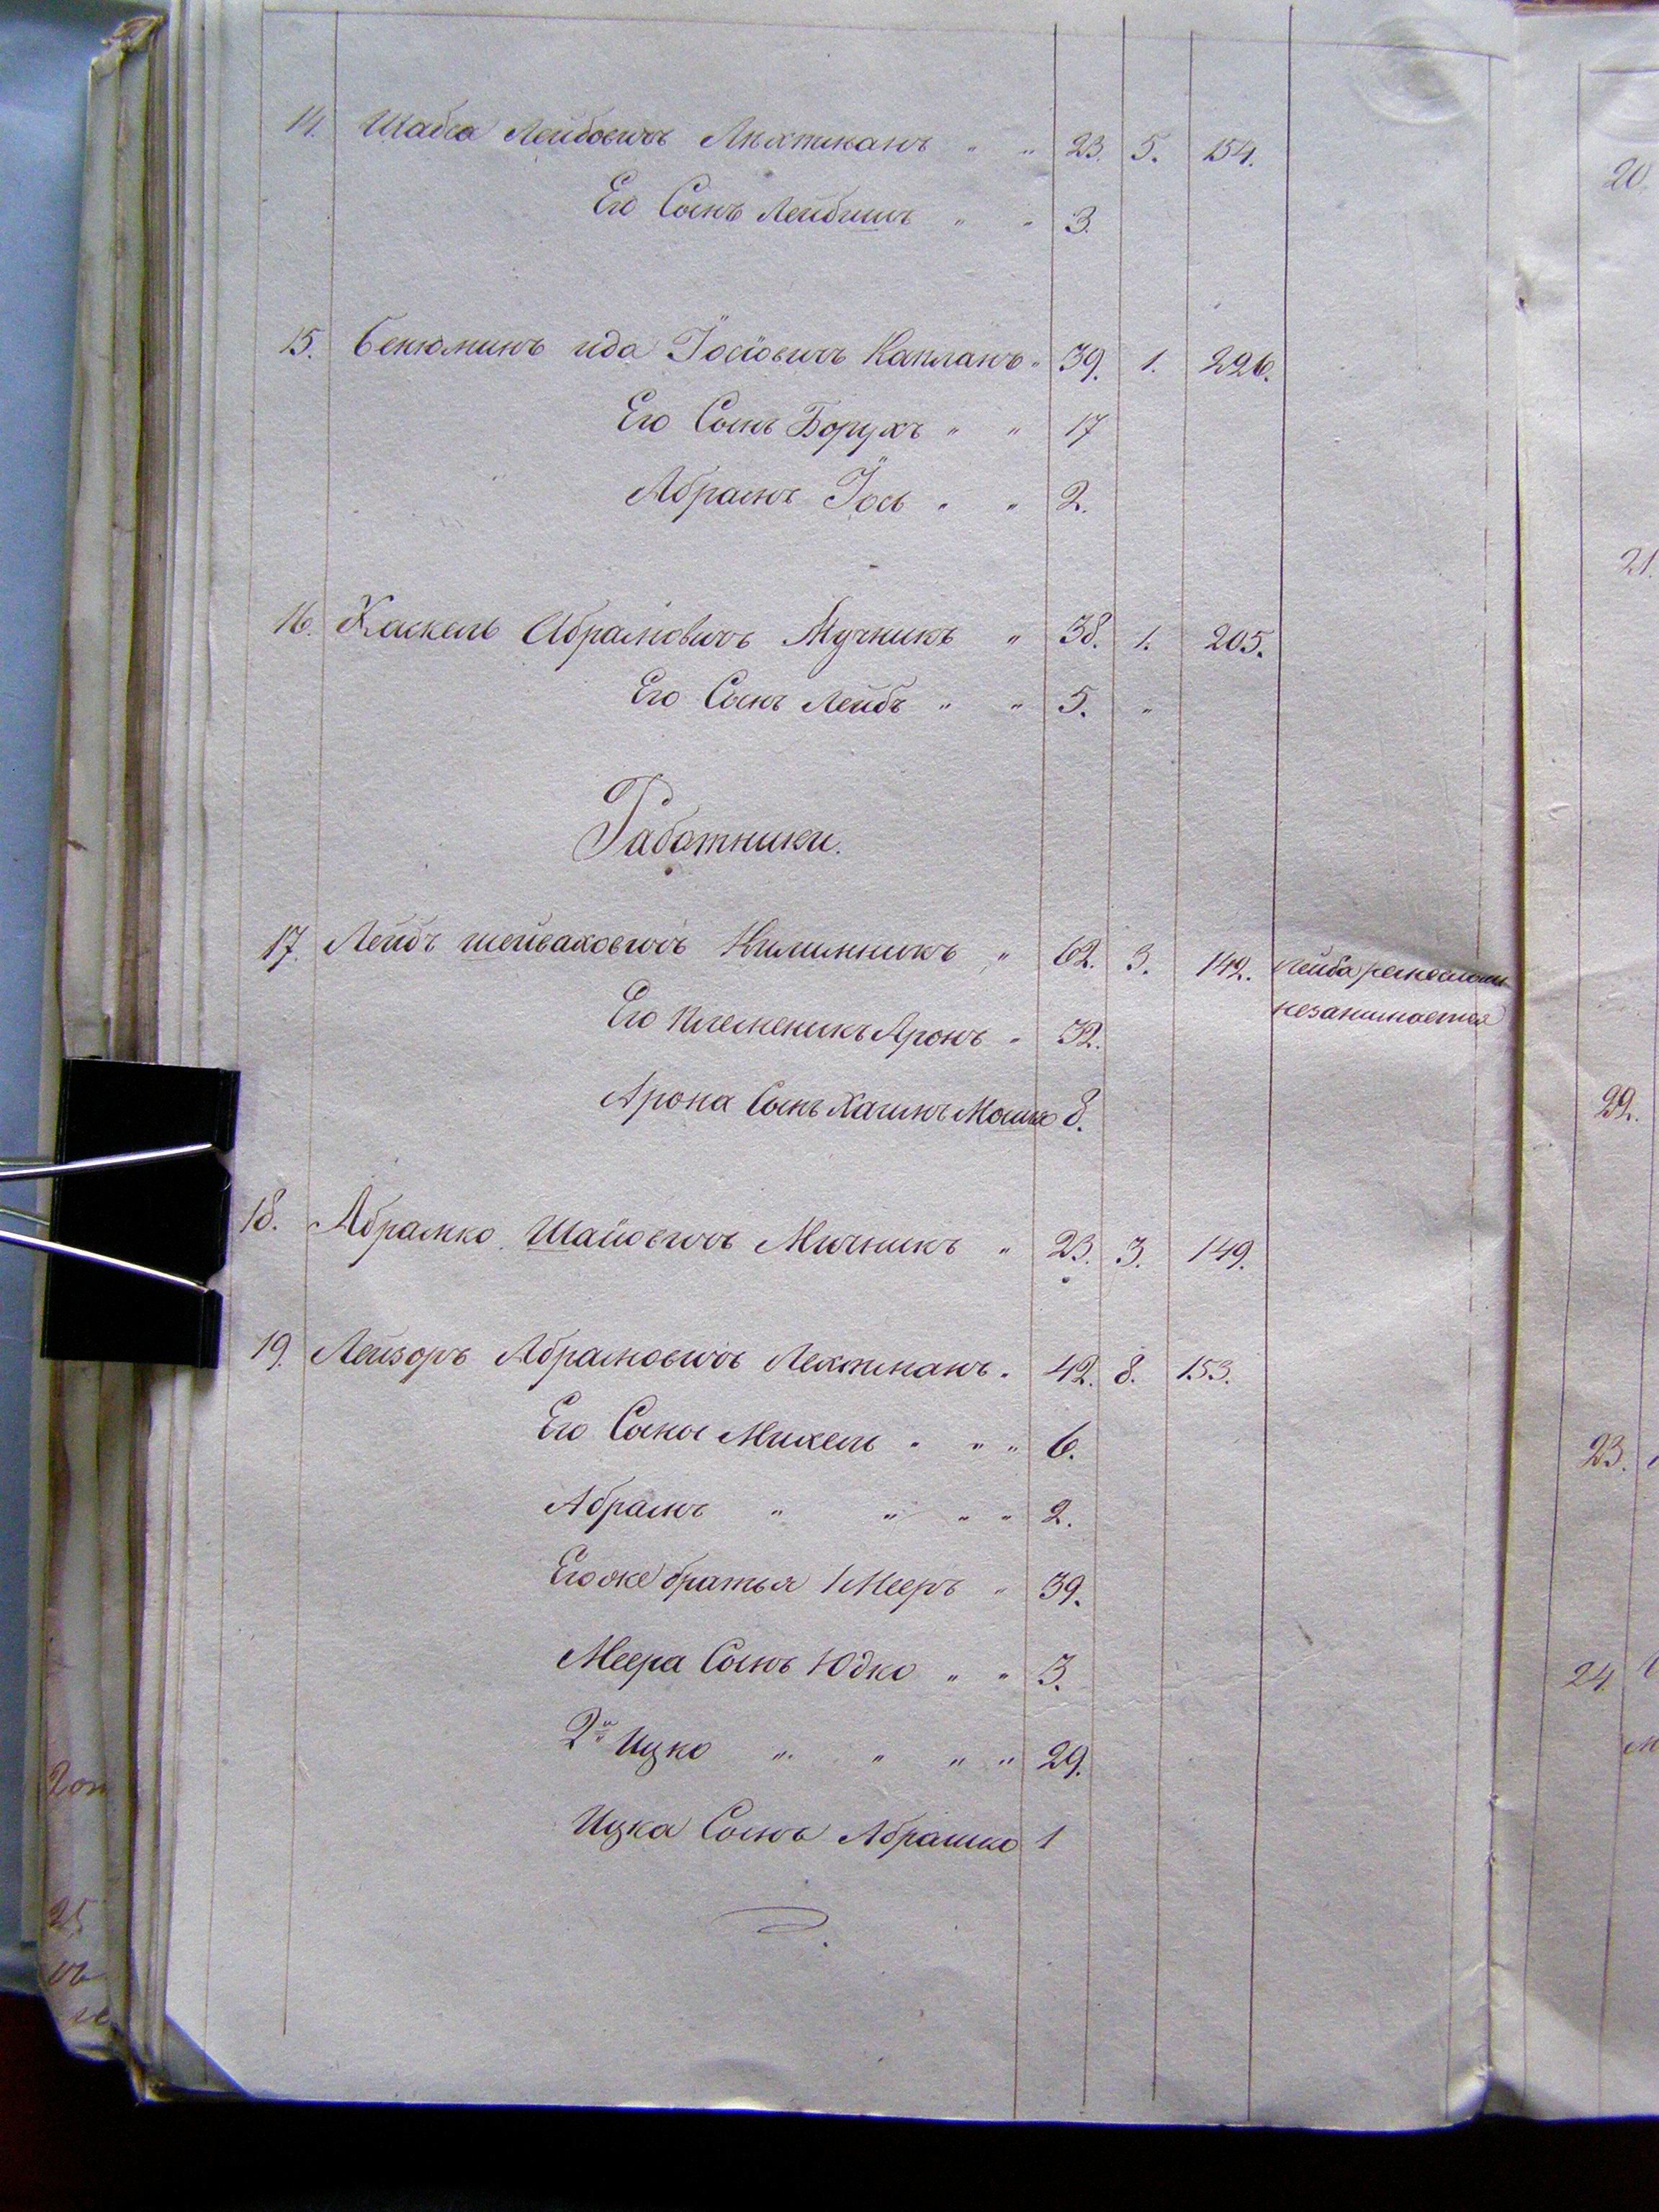 14. Шабса Лейбовичъ Лихтманъ " " 23. 5. 154.
Его Сынъ Лейбишъ " " 3.
15. Бенюминъ ида Іосіовичъ Капланъ " 39. 1. 226.
Его Сынъ Борухъ " " 17
Абрамъ Іось " " 2.
16. Хаскель Абрамовичъ Мучникъ " 38. 1. 205.
Его Сынъ Лейбъ " " 5. "
Работники.
17. Лейбъ Килимникъ " 62. 3. 142. Лейба ремесломъ
незанимается
Его племеникъ Аронъ " 32.
Арона Сынъ Хаимъ Мошко 8.
18. Абрамко Шайовичъ Мичникъ " 23. 3. 149.
19. Лейзоръ Абрамовичъ Лехтманъ " 42. 8. 153.
Его Сыны Михель " " " 6.
Абрамъ " " " " 2.
Егоже братья 1 Мееръ " 39.
Меера Сынъ Юдко " " 3.
2й Ицко " " " " 29.
Ицка Сынъ Абрашко 1
20.
21.
22.
23.
24.